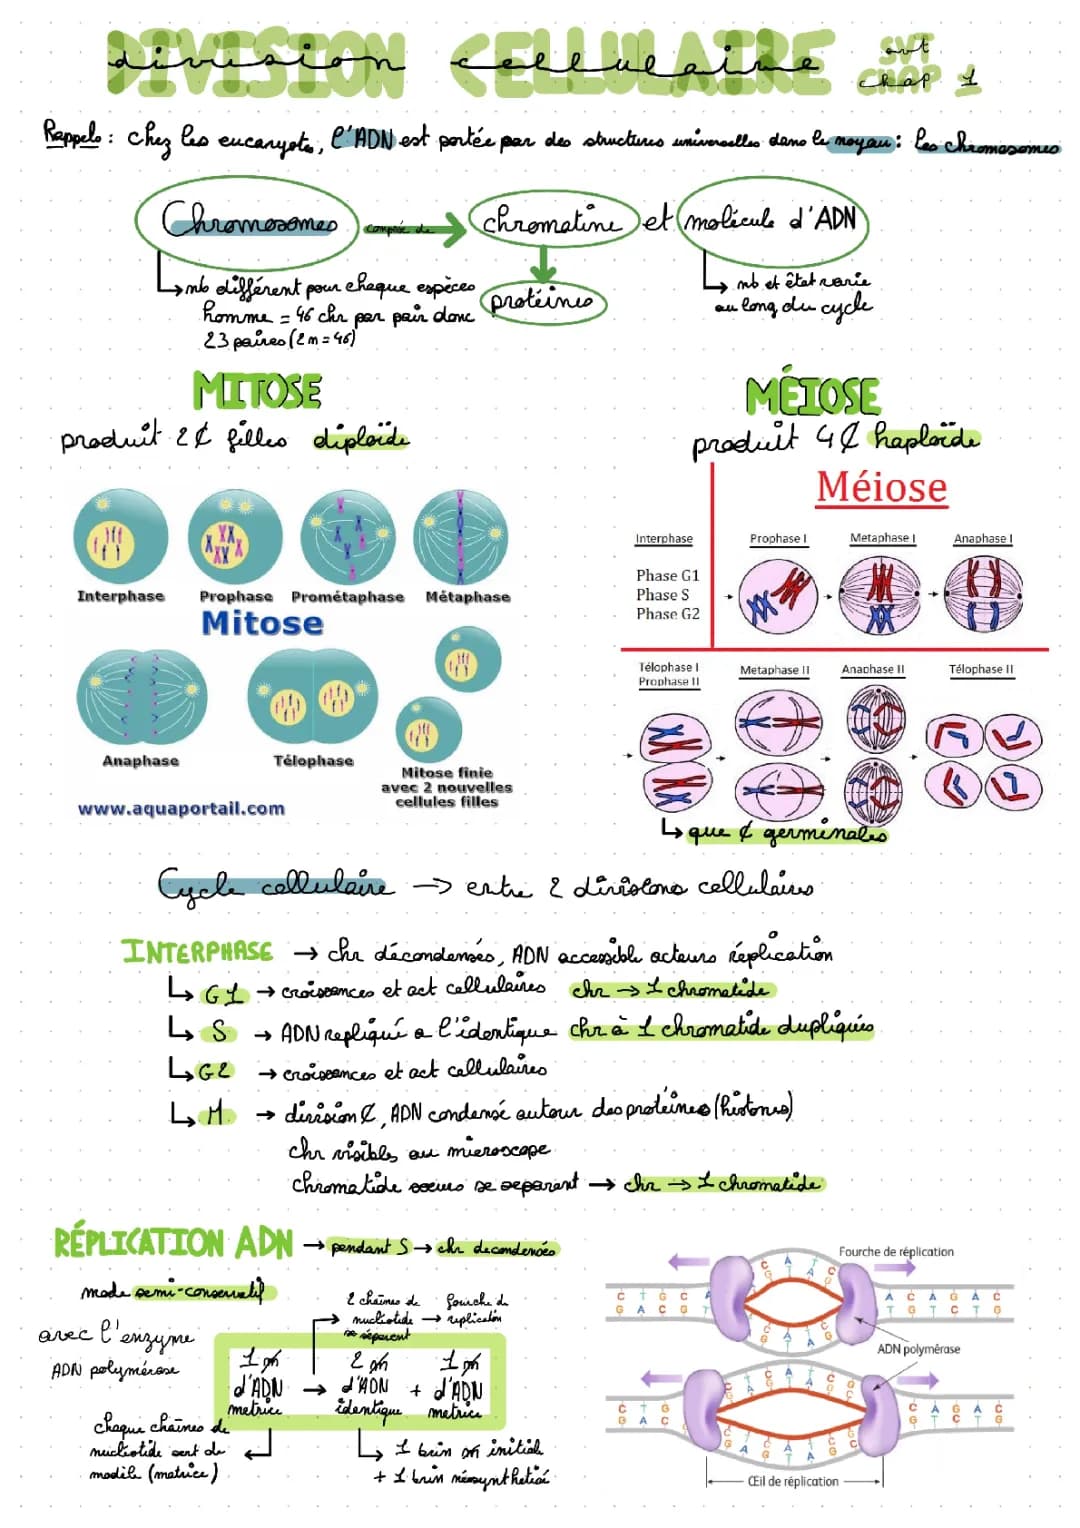 DIVISION CELLULAIRE
division cellulaire
SVT
CHAP 1
Rappels : Chez les eucaryote, l'ADN est portée par des structures universelles dans le noyau : les chromosomes
Chromosomes composée de chromatine et molécule d'ADN
protéines
nb différent pour chaque espèces
homme = 46 chr par pair donc
23 paires (2n = 46)
nb et êtat varie
au long du cycle
MITOSE
produit 2 ₵ filles diploïde
Interphase Prophase Prométaphase Métaphase
Mitose
Anaphase Télophase
Mitose finie
avec 2 nouvelles
cellules filles
www.aquaportail.com
MÉIOSE
produit 4 ₵ haploïde
Méiose
Interphase Prophase I Metaphase I Anaphase I
Phase G1
Phase S
Phase G2
Télophase I
Prophase II
Metaphase II Anaphase II Télophase II
↳ que ₵ germinales
Cycle cellulaire → entre 2 divisions cellulaires
INTERPHASE → chr décondensés, ADN accessible acteurs réplication
↳ G1 → croissances et act cellulaires chr → 1 chromatide
↳ S → ADN repliqué a l'identique chr à 1 chromatide dupliqués
↳ G2 → croissances et act cellulaires
↳ M. → division ₵, ADN condensé autour des protéines (histones)
chr visibles au microscope
chromatide soeurs se separent → chr → 1 chromatide
RÉPLICATION ADN → pendant S → chr decondensés
mode semi-conservatif
avec l'enzyme
ADN polymérase
2 chaînes de
nucléotide
se séparent
→ fourche de
replication
1 m
d'ADN
matrice
→ 2 m
d'ADN
identique
+ 1 m
d'ADN
matrice
chaque chaînes de
nucléotide sert de
modèle (matrice)
↳ 1 brin m initial
+ 1 brin néosynthetisé
Fourche de réplication
C T G C A
G A C G T
A C A G A C
T G T C T G
ADN polymérase
C T G
G A C
C A G A C
G T C T G
Œil de réplication